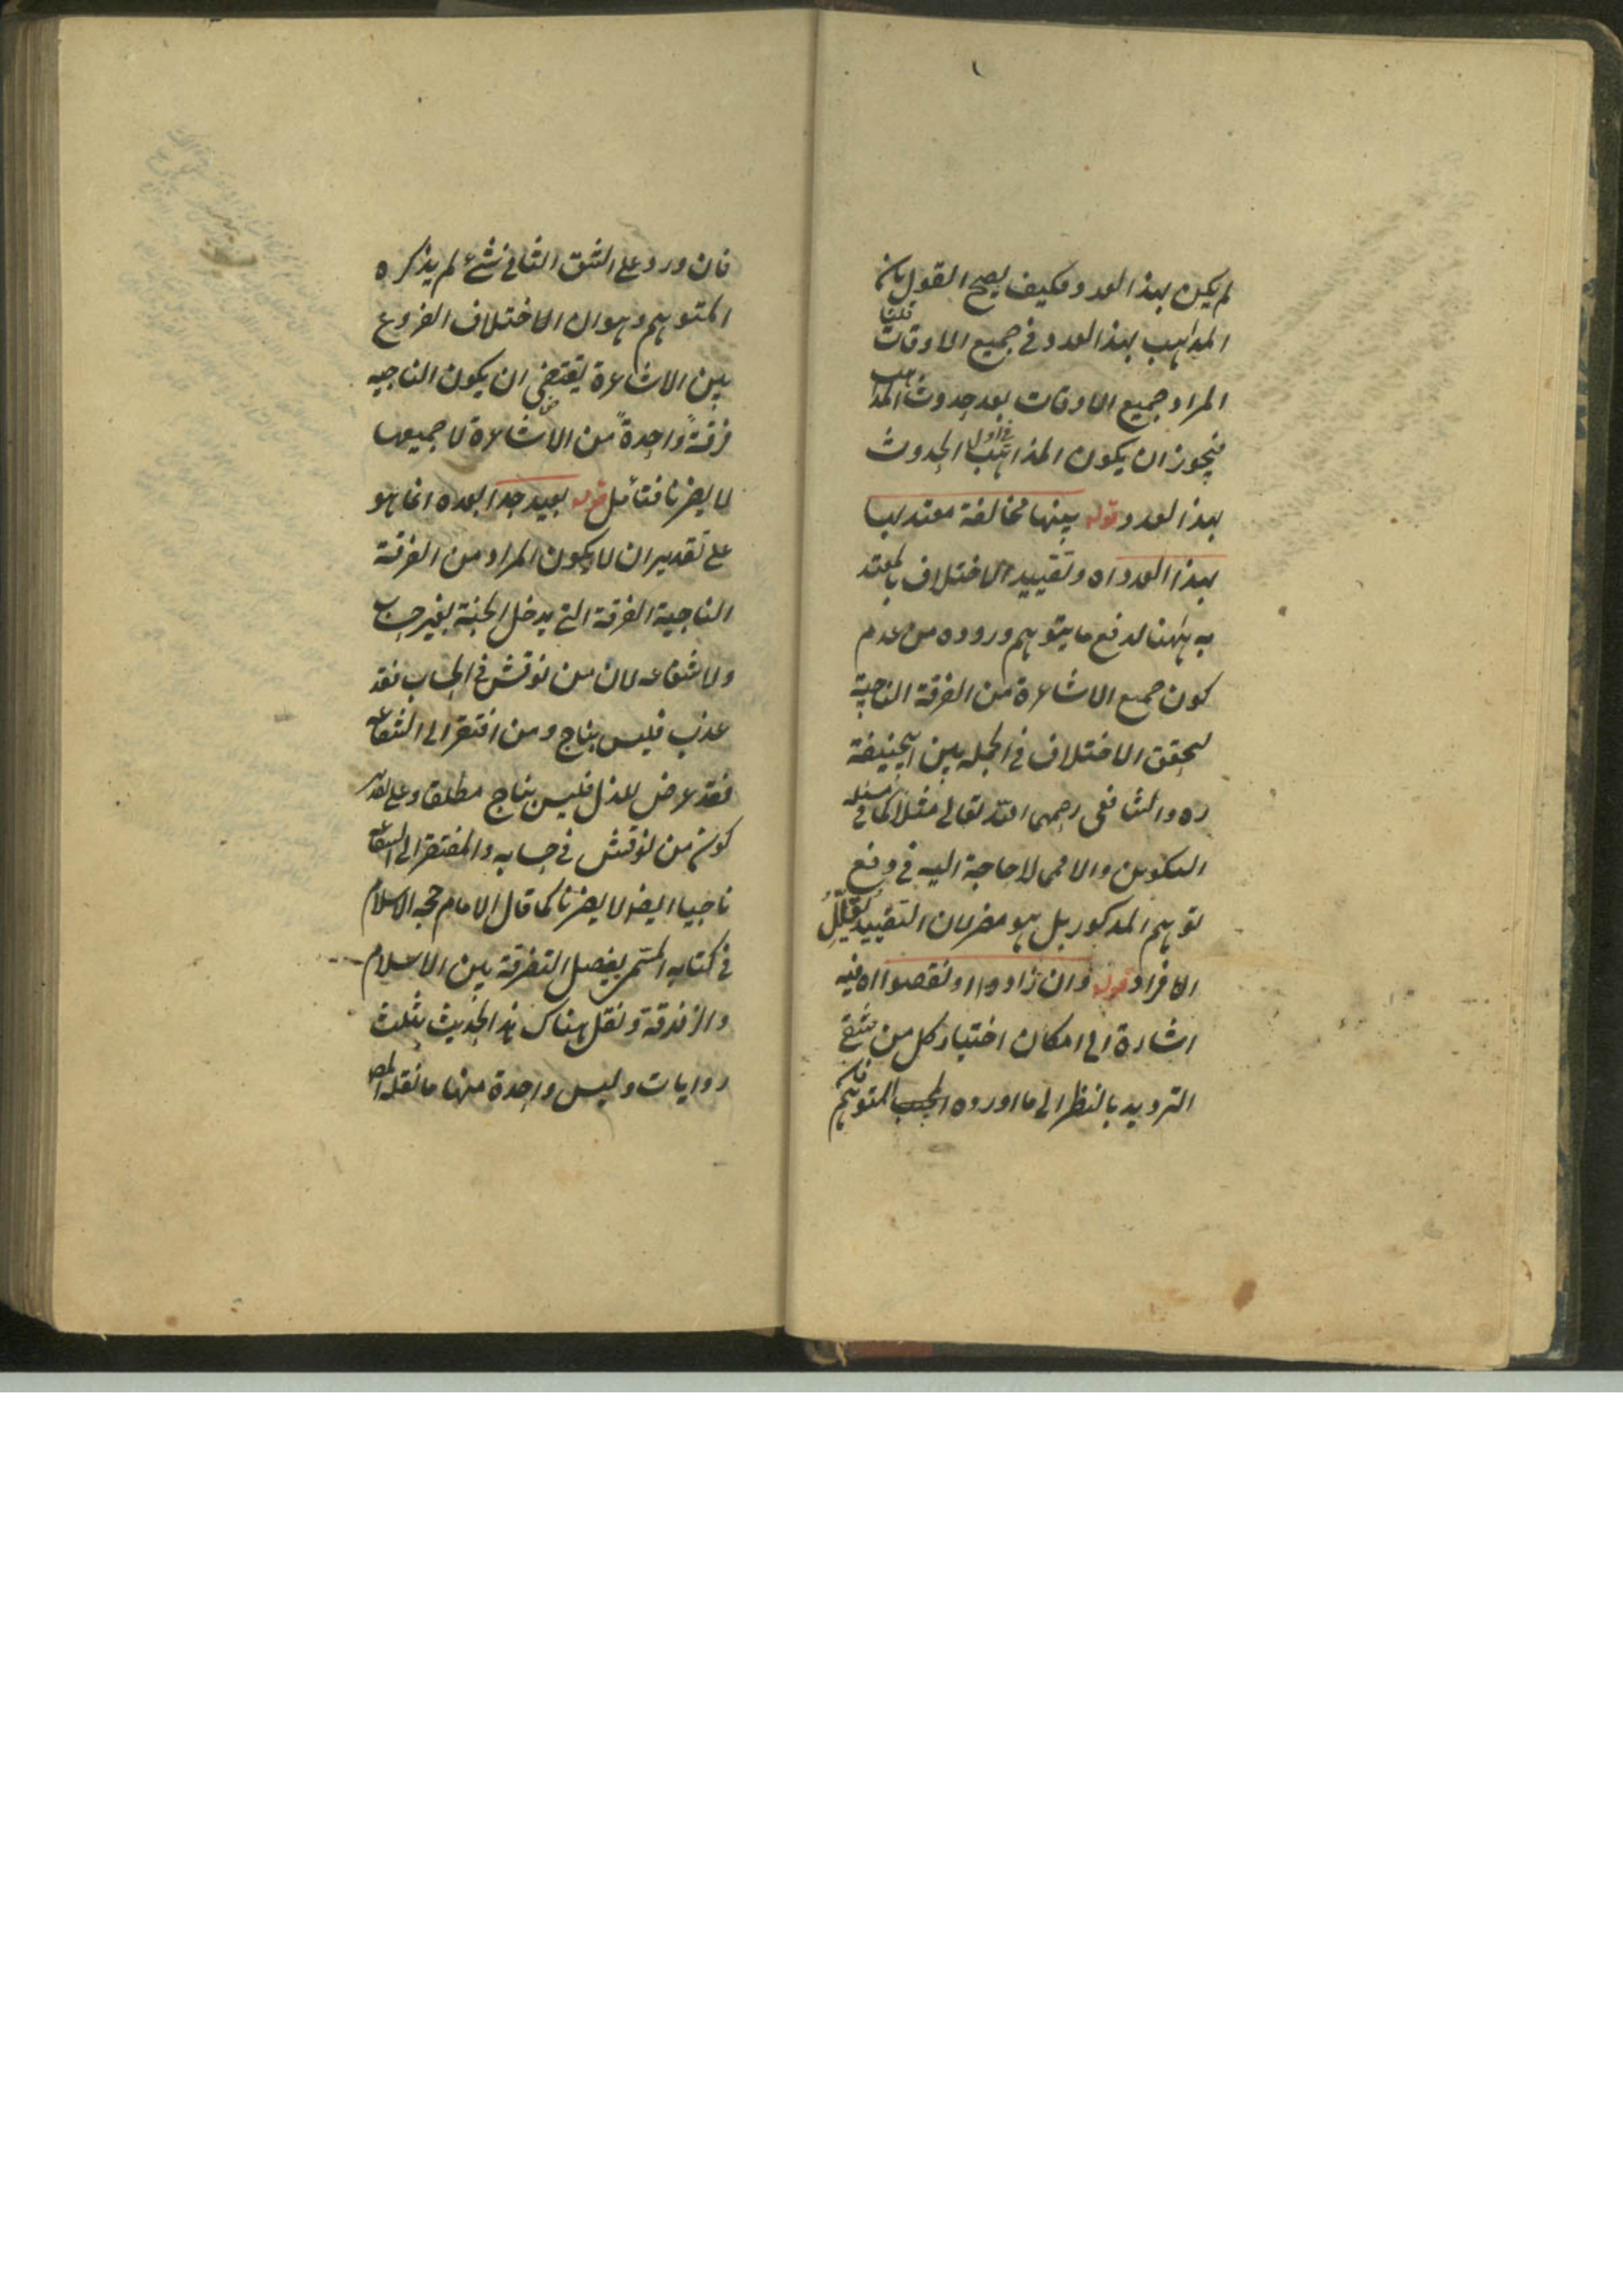 لم يكن بهذا العدد وفكيف يصح القول بان
المذاهب بهذا العدد في جميع الاوقات قلنا
المراد جميع الاوقات بعد حدوث المذاهب
فيجوز ان يكون المذاهب في اول الحدوث
بهذا العدد قوله بينها مخالفة معتد بها
بهذا العدد اه وتقييد الاختلاف بالمعتد
به ههنا لدفع ما يتوهم وروده من عدم
كون جميع الاشاعرة من الفرقة الناجية
لتحقق الاختلاف في الجملة بين ابيحنيفة
ره والشافعي رحمهما الله تعالى مثلا كما في مسئله
التكوين والا فمما لا حاجة اليه في دفع
توهم المذكور بل هو مضر لان التقييد يقلل
الافراد قوله وان زادوا او نقصوا اه فيه
اشارة الى امكان اختيار كل من شقي
الترديد بالنظر الى ما اورده المتوهم
فان ورد على الشق الثاني شئ لم يذكره
المتوهم وهو ان الاختلاف الفروع
بين الاشاعرة يقتضي ان يكون الناجيه
فرقةً واحدةً من الاشاعرة لا جميعها
لا يضرنا فتأمل قوله بعيد جدا بعده انما هو
على تقدير ان لا يكون المراد من الفرقة
الناجية الفرقة التي يدخل الجنة بغير حساب
ولا شفاعه لان من نوقش في الحساب فقد
عذب فليس بناج ومن افتقر الى الشفاعه
فقد عرض للذل فليس بناج مطلقا وعلى تقدير
كون من نوقش في حسابه والمفتقر الى الشفاعه
ناجيا ايضا لا يضرنا كما قال الامام حجه الاسلام
في كتابه المسمى بفصل التفرقة بين الاسلام
والزندقة ونقل هناك هذا الحديث بثلث
روايات وليس واحدة منها ما نقله المص